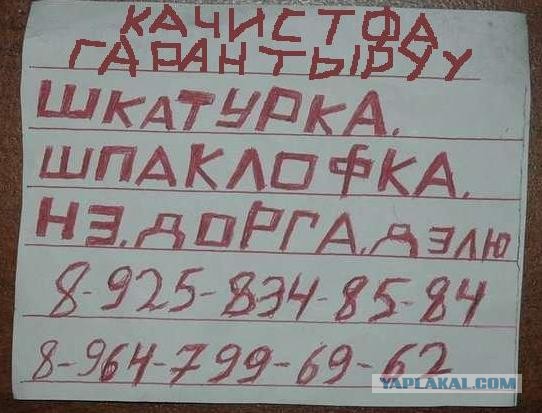 КАЧИСТФА
ГАРАНТЫРУУ
ШКАТУРКА.
ШПАКЛОФКА.
НЭ.ДОРГА.ДЭЛЮ
8-925-834-85-84
8-964-799-69-62
YAPLAKAL.COM